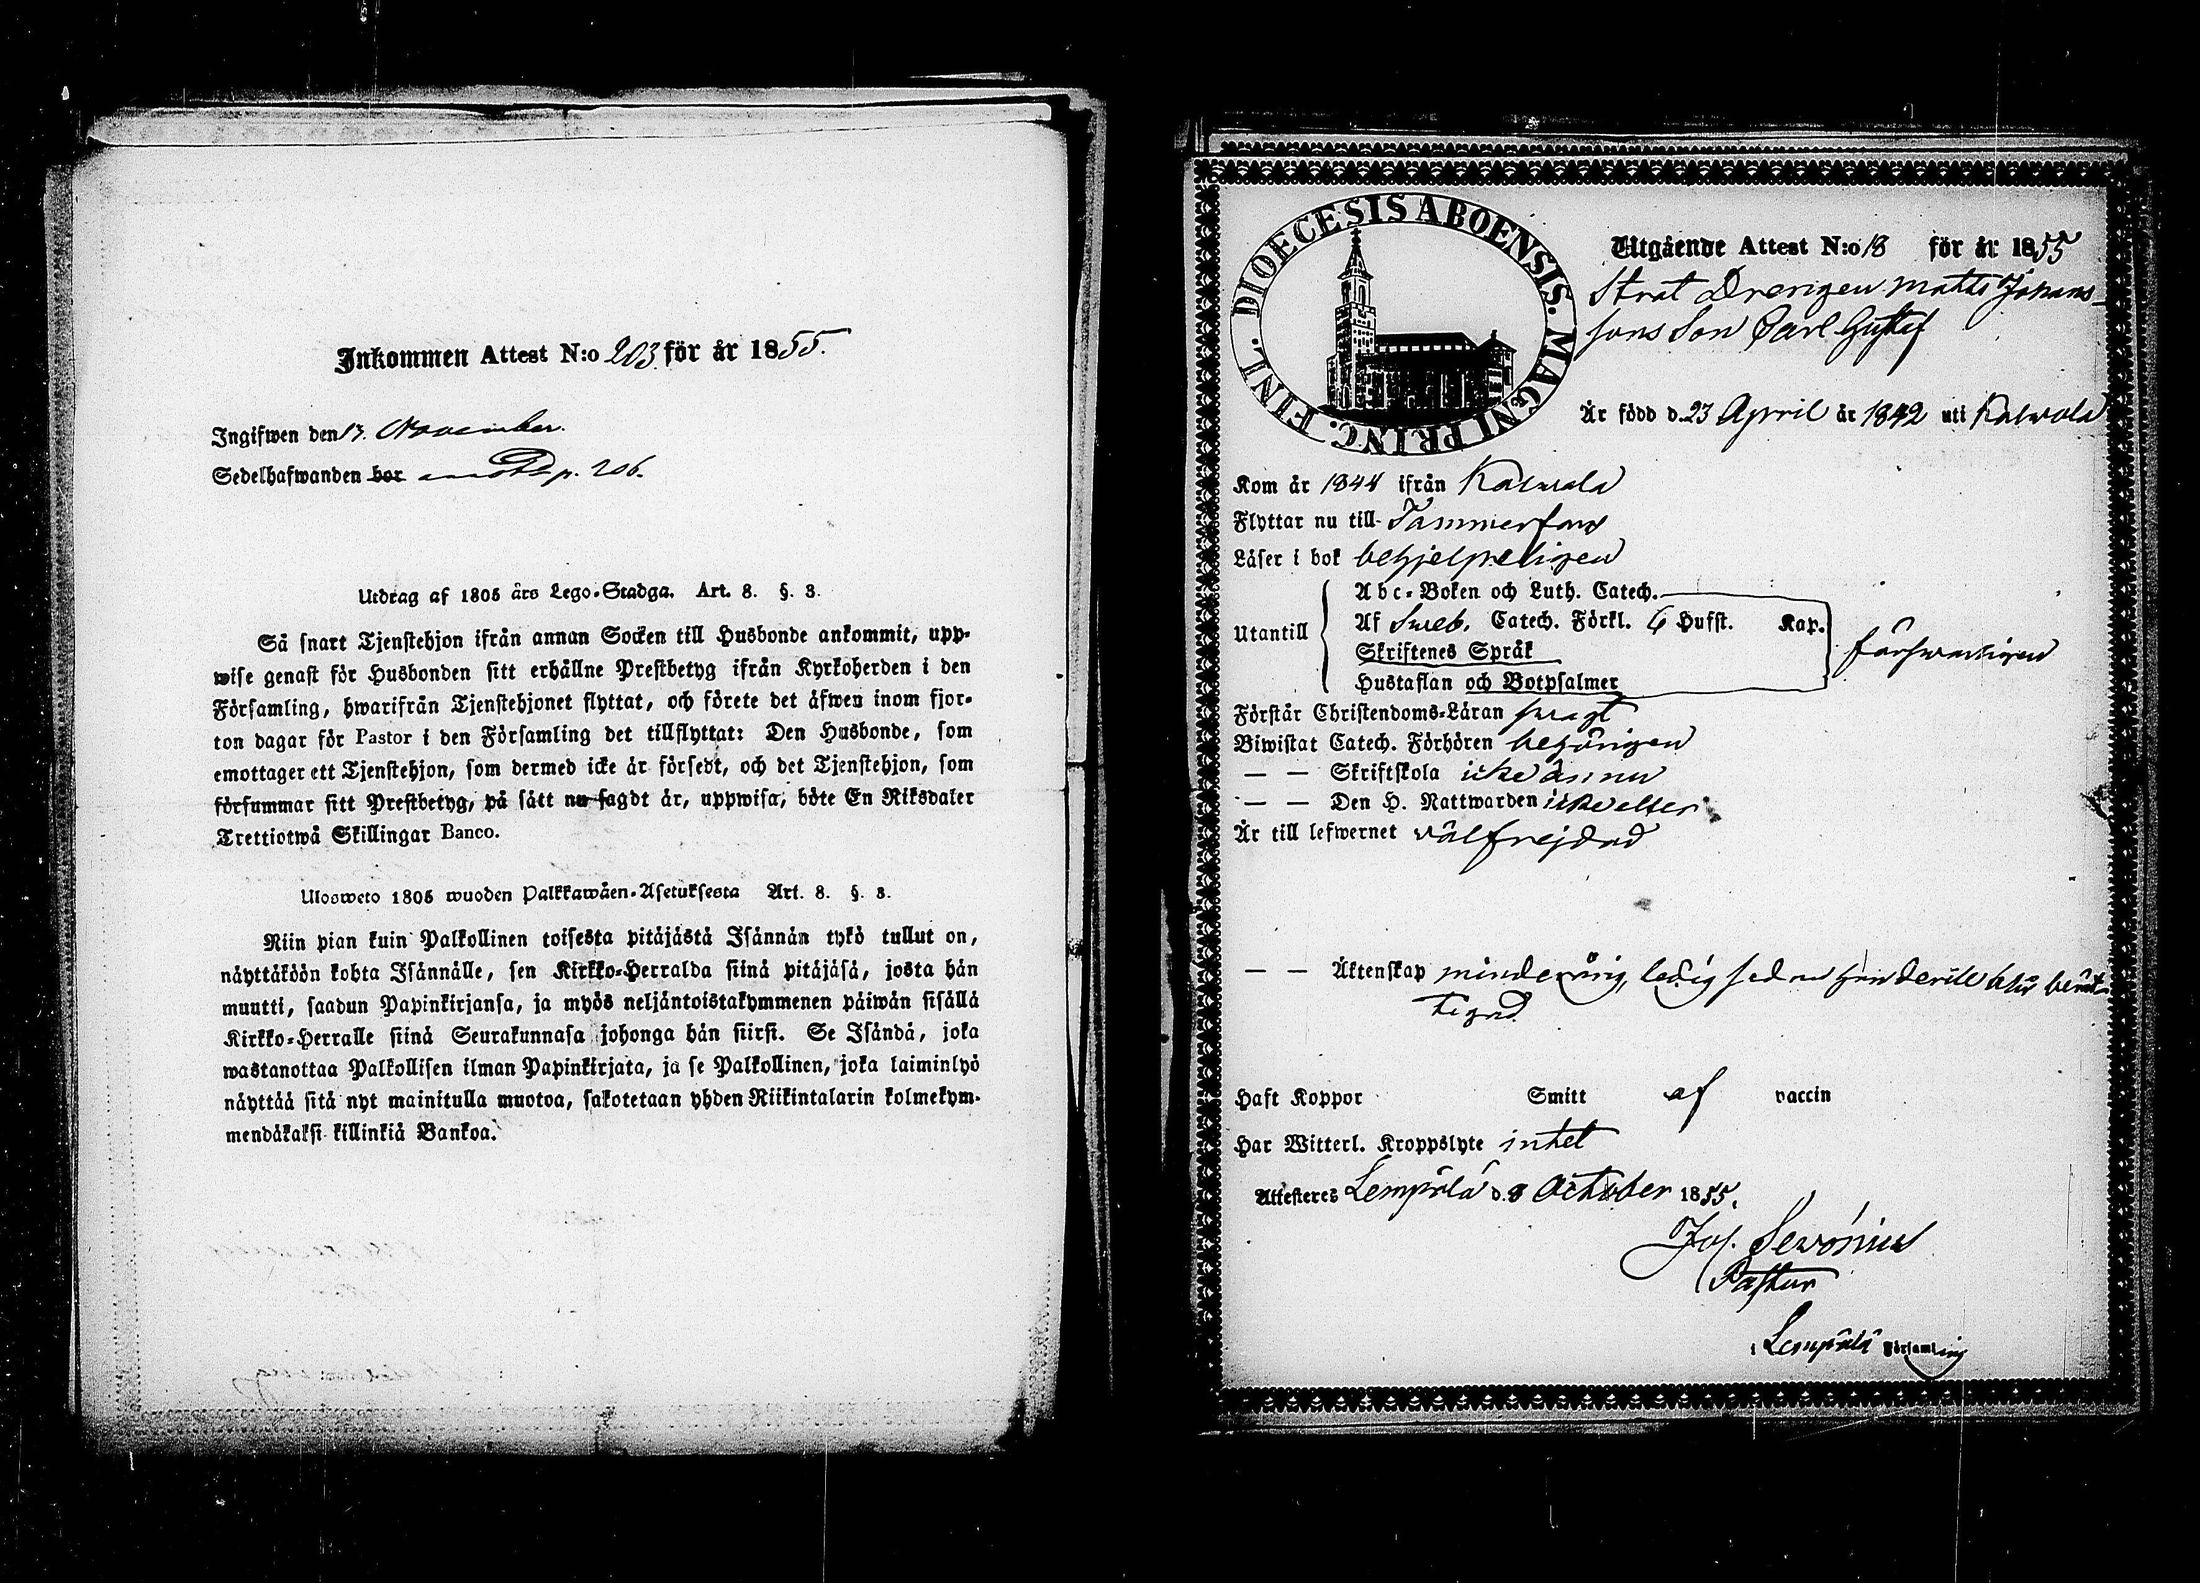 Inkommen Attest N:o 203 för år 1855.
Ingifwen den 13. November.
Sedelhafwanden bor p. 206.
Utdrag af 1805 års Lego-Stadga. Art. 8. §. 3.
Så snart Tjenstehjon ifrån annan Socken till Husbonde ankommit, upp-
wise genast för Husbonden sitt erhållne Prestbetyg ifrån Kyrkoherden i den
Församling, hwarifrån Tjenstehjonet flyttat, och förete det äfwen inom fjor-
ton dagar för Pastor i den Församling det tillflyttat: Den Husbonde, som
emottager ett Tjenstehjon, som dermed icke är försedt, och det Tjenstehjon, som
försummar sitt Prestbetyg, på sätt nu sagdt är, uppwisa, böte En Riksdaler
Trettiotwå Skillingar Banco.
Ulosweto 1805 wuoden Palkkawäen-Asetuksesta Art. 8. §. 3.
Niin pian kuin Palkollinen toisesta pitäjästä Isännän tykö tullut on,
näyttäköön kohta Isännälle, sen Kirkko-Herralda siinä pitäjäsä, josta hän
muutti, saadun Papinkirjansa, ja myös neljäntoistakymmenen päiwän sisällä
Kirkko-Herralle siinä Seurakunnasa johonga hän siirsi. Se Isändä, joka
wastanottaa Palkollisen ilman Papinkirjata, ja se Palkollinen, joka laiminlyö
näyttää sitä nyt mainitulla muotoa, sakotetaan yhden Riikintalarin kolmekym-
mendäkaksi killinkiä Bankoa.
DIOECESIS ABOENSIS. MAGNI PRINC. FINL.
Utgående Attest N:o 18 för år 1855
Strat Drengen Matts Johans-
sons Son Carl Gustaf
Är född d. 23 April år 1842 uti Kalvola
Kom år 1844 ifrån Kalvola
Flyttar nu till Tammerfors
Läser i bok behjelpeligen
Utantill
Abc-Boken och Luth. Catech.
Af Sweb. Catech. Förkl. 6 Hufst. Kap.
Skriftenes Språk
Hustaflan och Botpsalmer
försvarligen
Förstår Christendoms-Läran svagt
Biwistat Catech. Förhören behörigen
— — Skriftskola icke ännu
— — Den H. Nattwarden icke eller
Är till lefwernet välfrejdad
— — Äktenskap minderårig, ledig
Haft Koppor Smitt af vaccin
Har Witterl. Kroppslyte intet
Attesteres Lempälä d. 8 October 1855.
Jos. Sevónius
Pastor
i Lempälä Församling